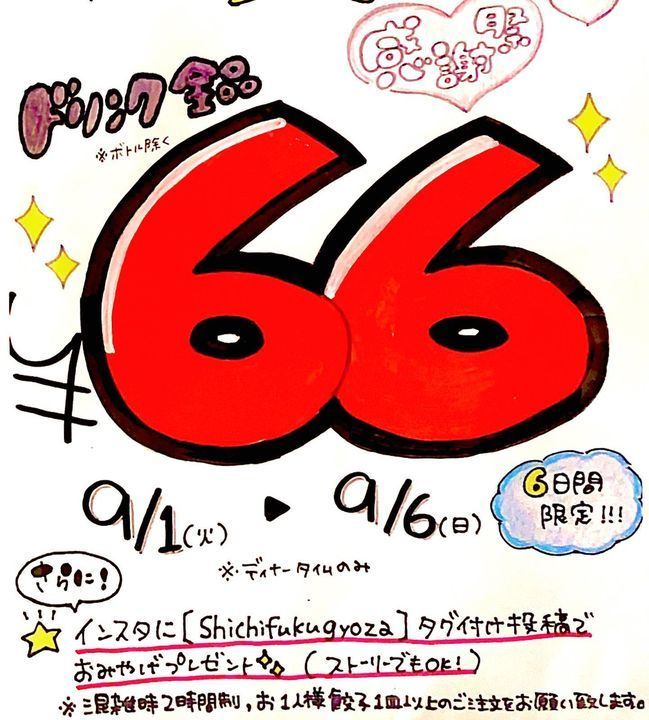 感謝祭
ドリンク全品
※ボトル除く
¥66
9/1(火)▶9/6(日)
6日間
限定!!!
※ディナータイムのみ
さらに!
インスタに[Shichifukugyoza]タグ付け投稿で
おみやげプレゼント(ストーリーでもOK!)
※混雑時2時間制,お1人様餃子1皿以上のご注文をお願い致します。